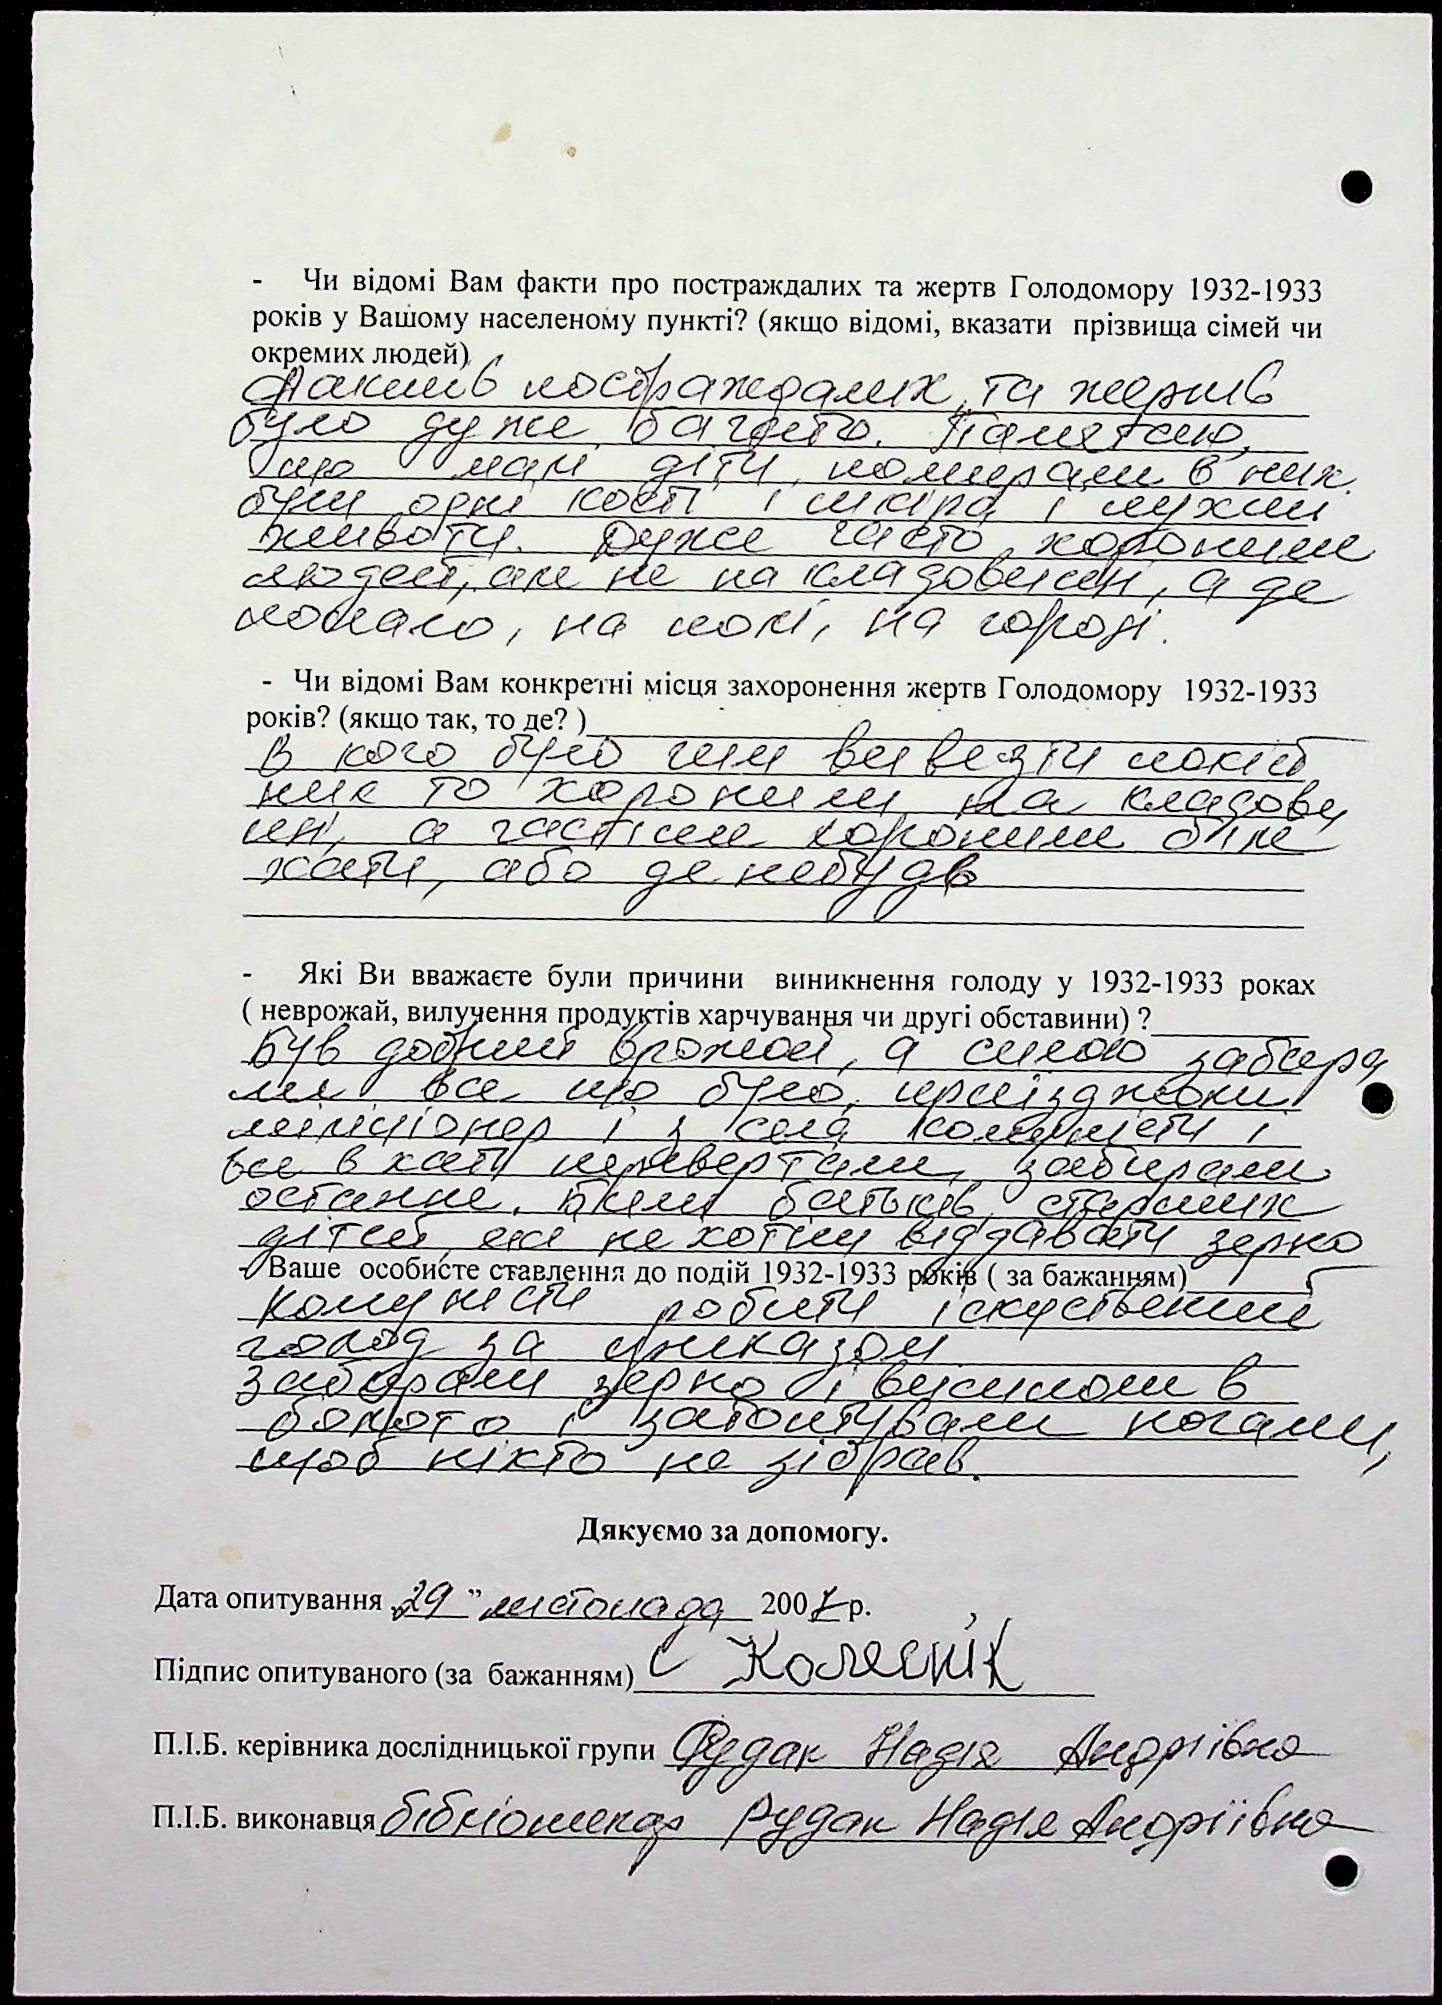 - Чи відомі Вам факти про постраждалих та жертв Голодомору 1932-1933
років у Вашому населеному пункті? (якщо відомі, вказати прізвища сімей чи
окремих людей)
Фактів постраждалих та жертв
було дуже багато. Памятаю,
що малі діти помирали в них
були одні кості і шкіра і пухлі
животи. Дуже часто хоронили
людей, але не на кладовищі, а де
попало, на полі, на городі.
- Чи відомі Вам конкретні місця захоронення жертв Голодомору 1932-1933
років? (якщо так, то де? )
В кого було чим вивезти покій
ник то хоронили на кладови
щі, а частіше хоронили біля
хати, або де небудь
- Які Ви вважаєте були причини виникнення голоду у 1932-1933 роках
( неврожай, вилучення продуктів харчування чи другі обставини) ?
Був добрий врожай, а силою забира
ли все що було, приїзджали
міліціонер і з села комуністи і
все в хаті перевертали, забирали
останнє. Били батьків, старших
дітей, які не хотіли віддавати зерно
- Ваше особисте ставлення до подій 1932-1933 років ( за бажанням)
Комуністи робити іскуствений
голод за приказом
забирали зерно і висипали в
болото і затоптували ногами,
щоб ніхто не зібрав.
Дякуємо за допомогу.
Дата опитування „29 ” листопада 2007 р.
Підпис опитуваного (за бажанням) Колеснік
П.І.Б. керівника дослідницької групи Рудак Надія Андріївна
П.І.Б. виконавця бібліотекар Рудак Надія Андріївна